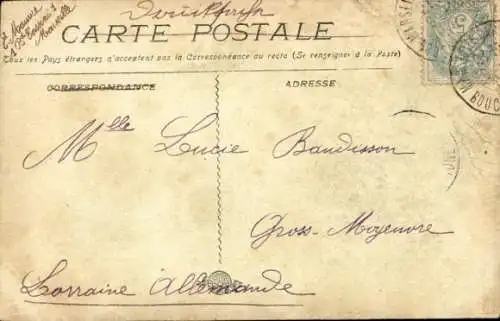 Drucksache
CARTE POSTALE
Tous les Pays étrangers n'acceptent pas la Correspondance au recto (Se renseigner à la Poste)
CORRESPONDANCE
ADRESSE
Melle Lucie Baudisson
Gross-Moyeuvre
Lorraine Allemande